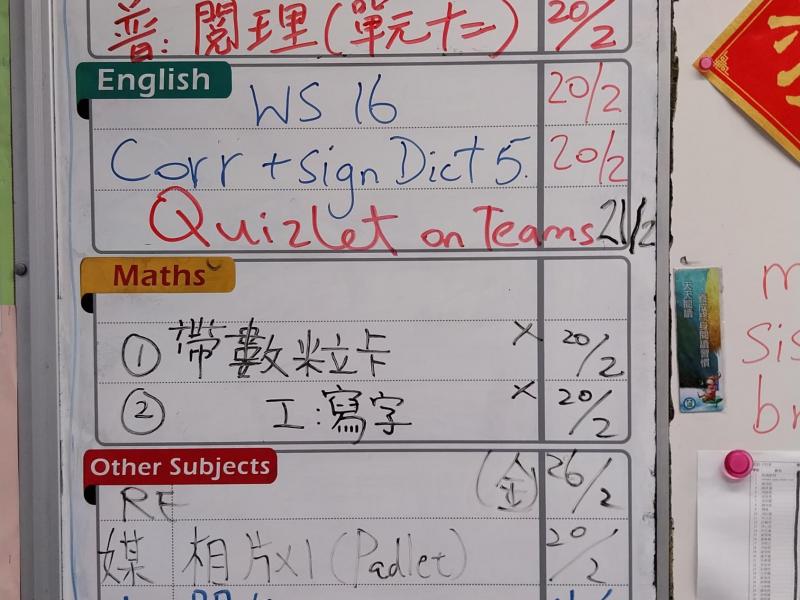 普: 閱理(單元十二) 20/2
English
WS 16 20/2
Corr + sign Dict 5. 20/2
Quizlet on Teams 21/2
Maths
① 帶數粒卡 × 20/2
② 工:寫字 × 20/2
Other Subjects
RE (金) 26/2
媒 相片x1 (Padlet) 20/2
天天閱讀